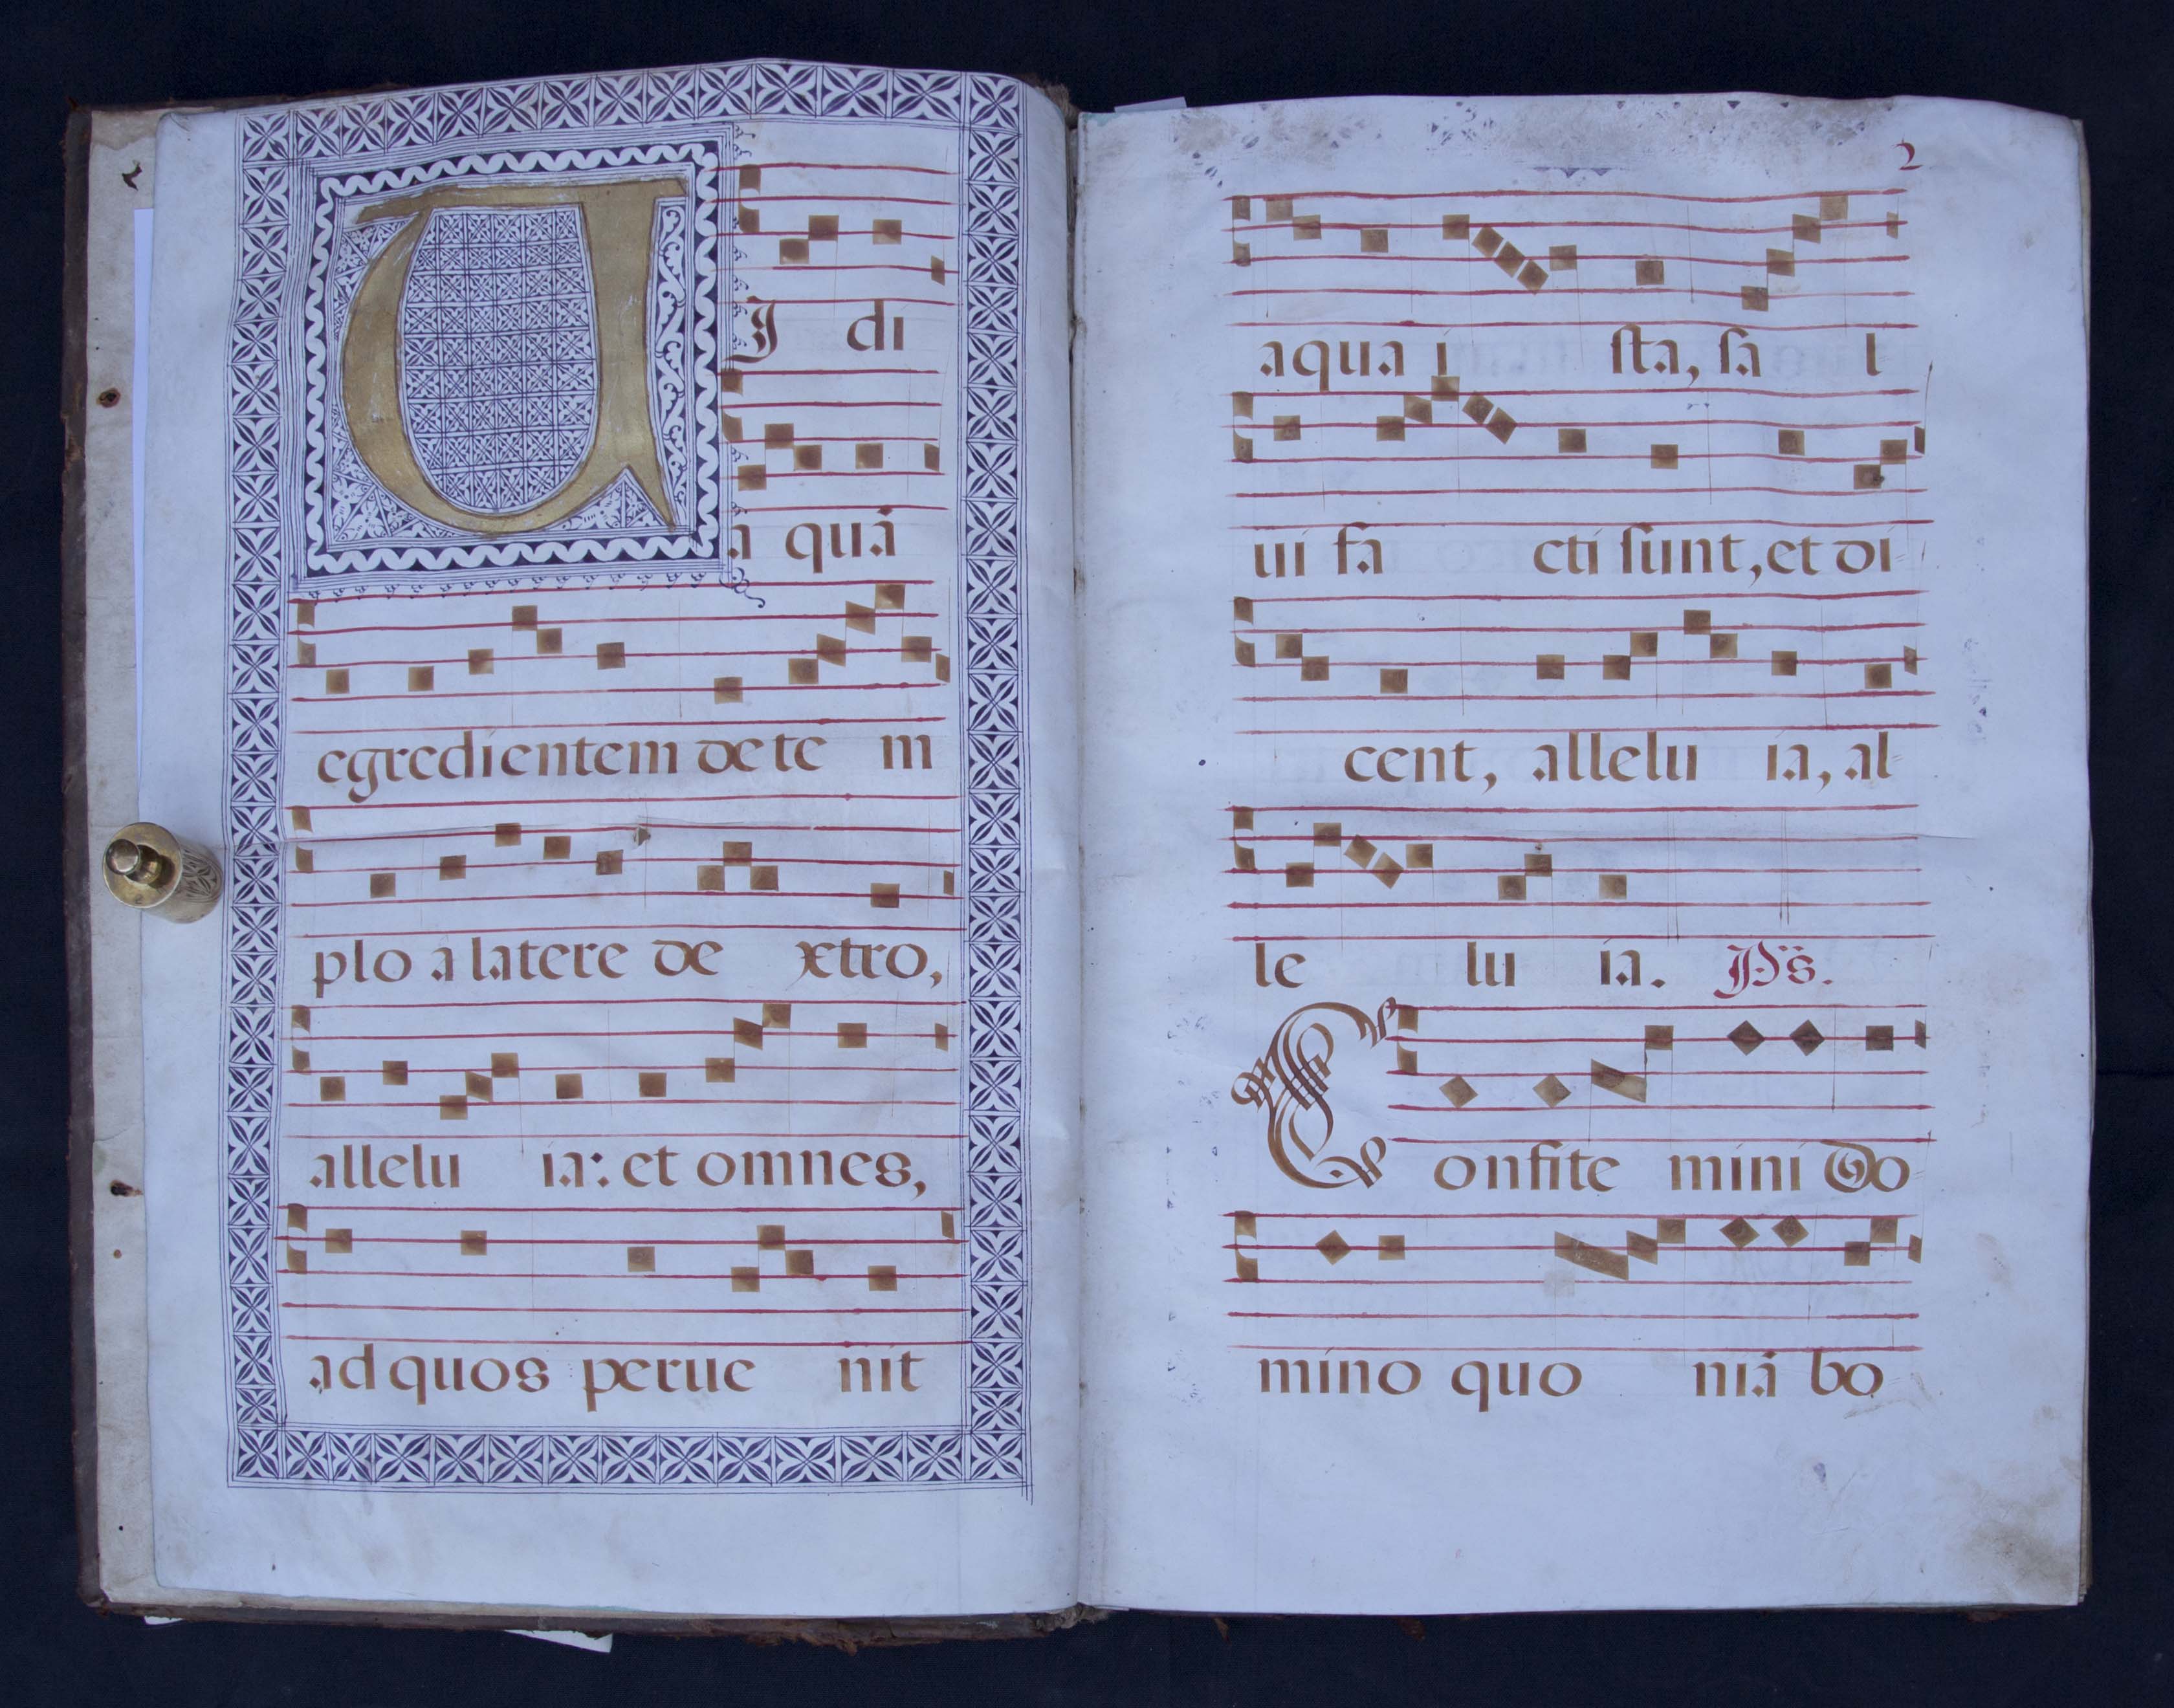 UJ di
a quã
egredientem de te m
plo a latere de xtro,
allelu ia: et omnes,
ad quos perue nit
2
aqua i sta, sa l
ui fa cti sunt, et di
cent, allelu ia, al
le lu ia. Ps.
Confite mini Do
mino quo niã bo